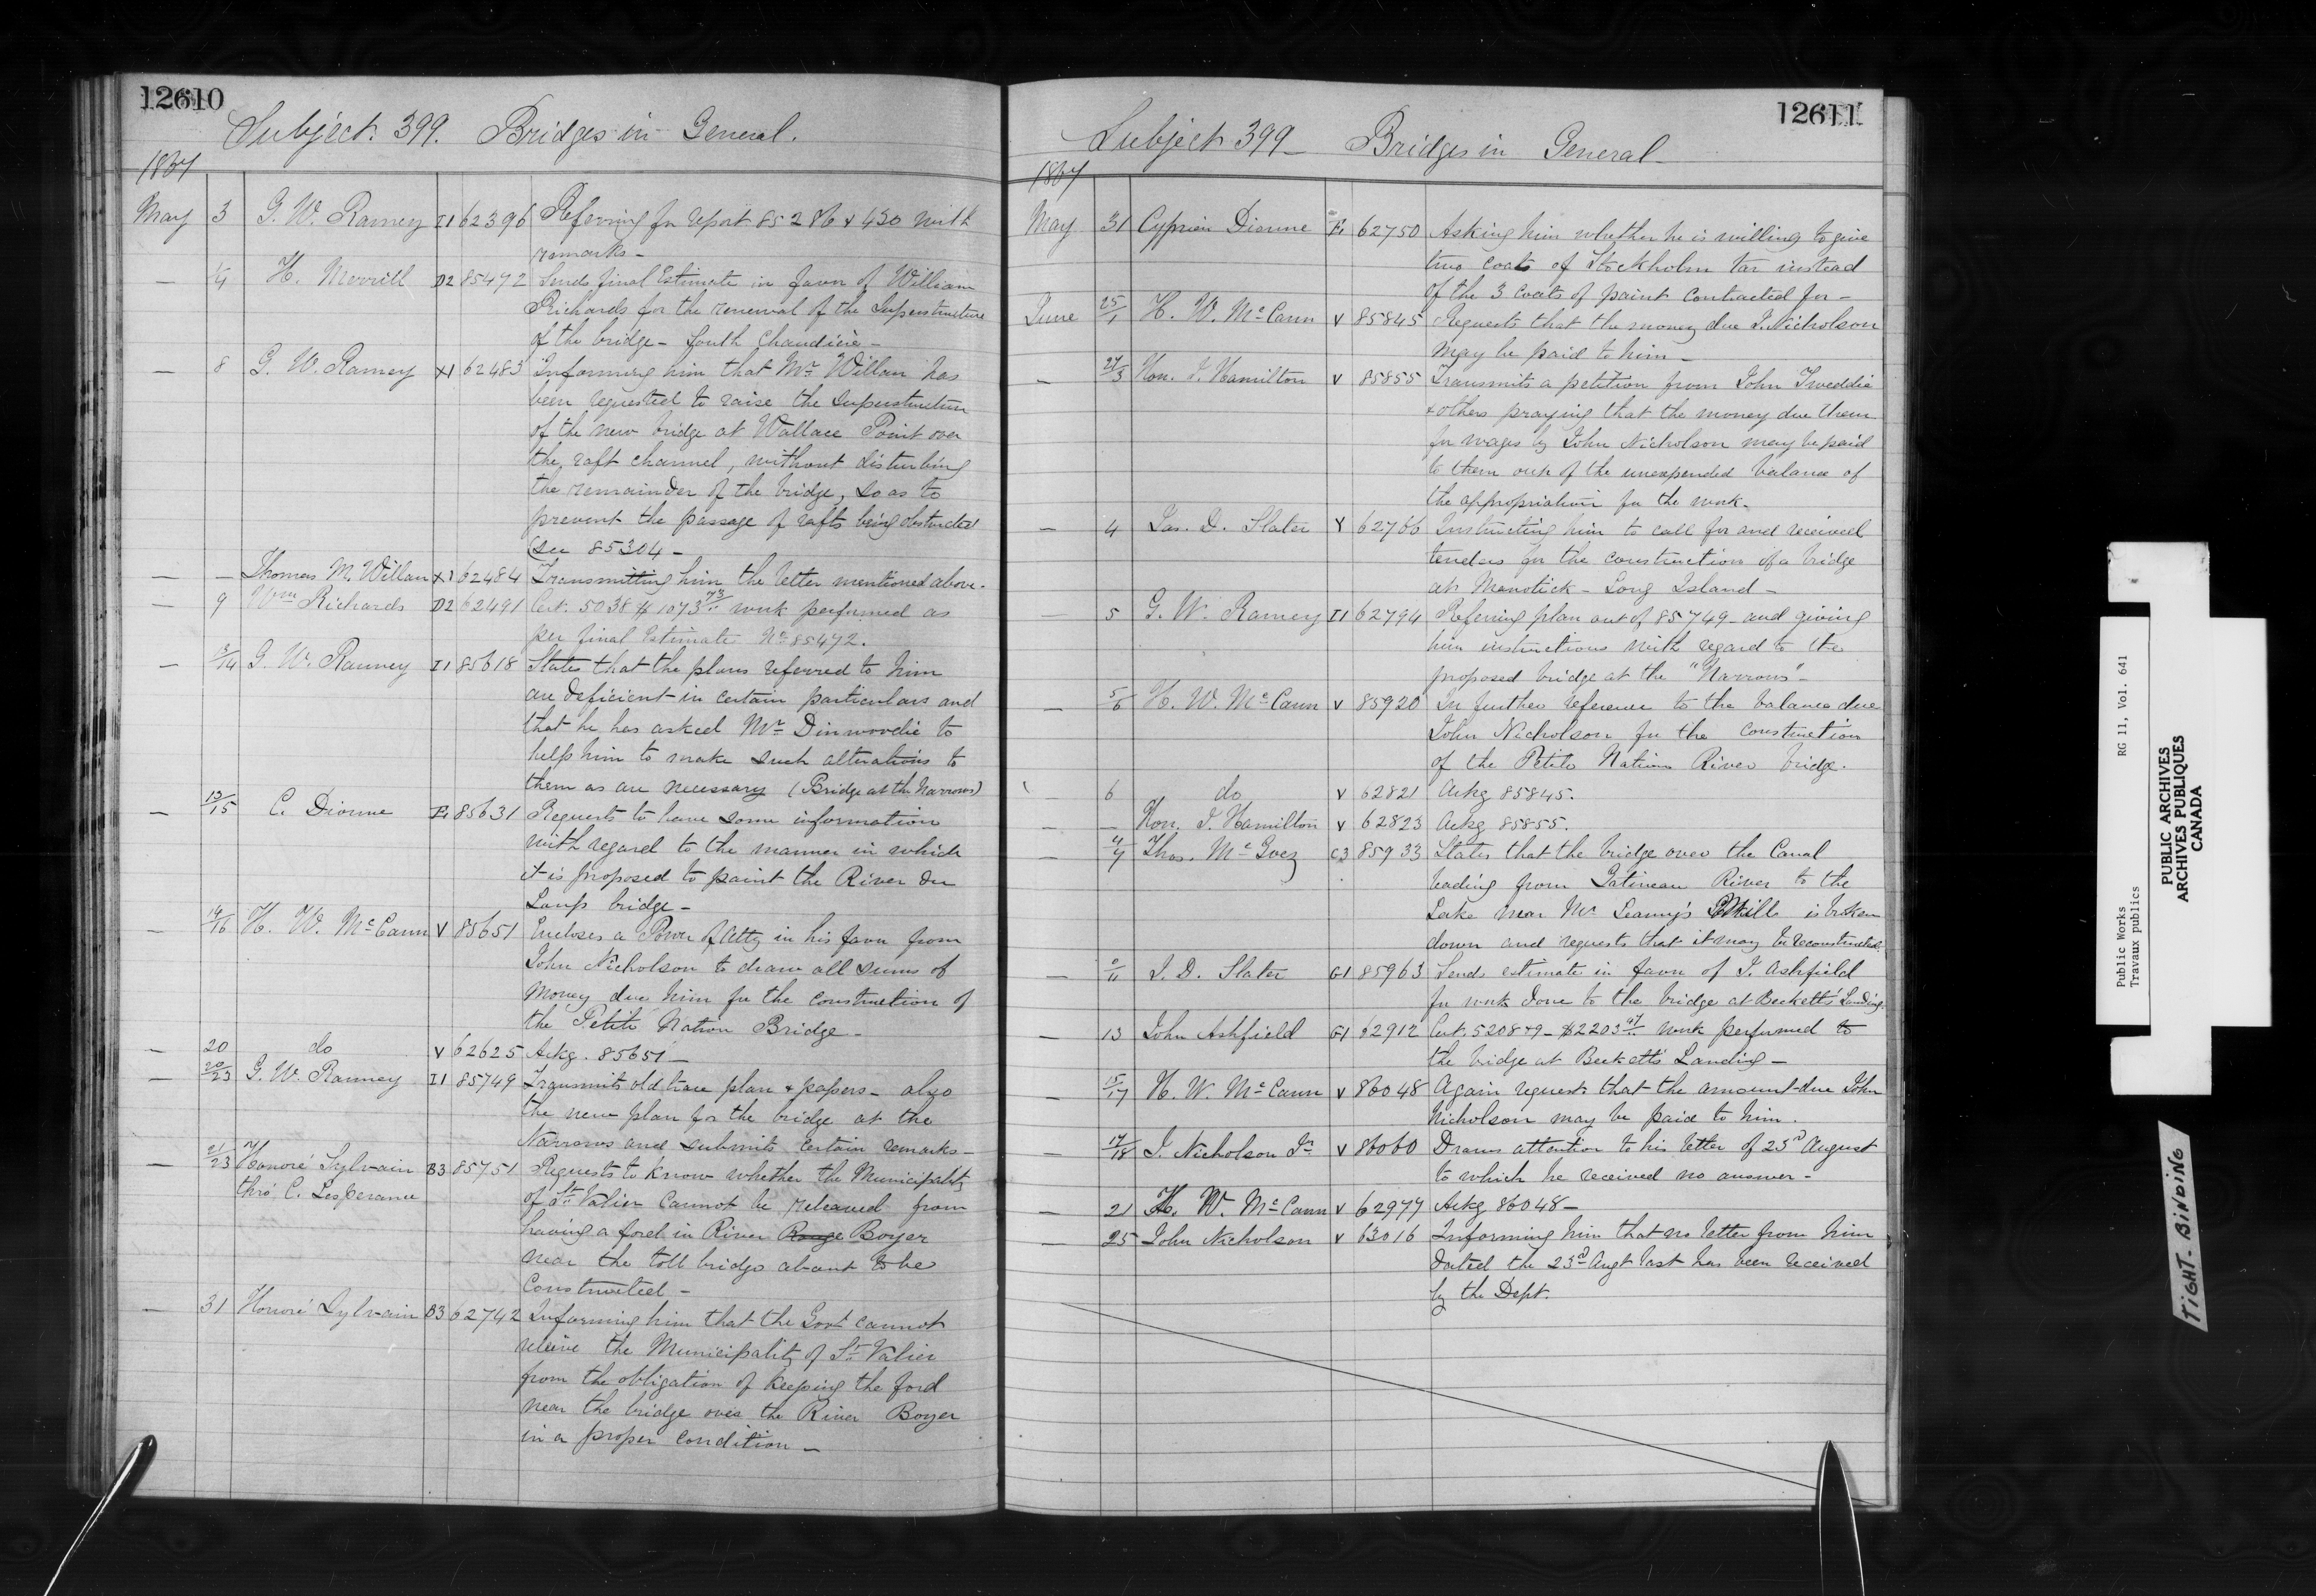 12610
Subject. 399. Bridges in General.
1867
May 3 G. W. Ranney I1 62396 Referring for report 85286 & 430 with
remarks -
— ¼ H. Merrill D2 85472 Sends final Estimate in favor of William
Richards for the renewal of the Superstructure
of the bridge - South Chaudière -
— 8 G. W. Ranney X1 62483 Informing him that Mr Willan has
been requested to raise the Superstructure
of the new bridge at Wallace Point over
the raft channel, without disturbing
the remainder of the bridge, so as to
prevent the passage of rafts being obstructed
(see 85304 -
— — Thomas M. Willan X1 62484 Transmitting him the letter mentioned above.
— 9 Wm Richards D2 62491 Cert. 5038 $1073 73/.. work performed as
per final Estimate No 85472.
— 13/14 G. W. Ranney I1 85618 States that the plans referred to him
are deficient in certain particulars and
that he has asked Mr Dinwoodie to
help him to make such alterations to
them as are necessary (Bridge at the Narrows)
— 13/15 C. Dionne E1 85631 Requests to have some information
with regard to the manner in which
it is proposed to paint the River du
Loup bridge -
— 14/16 H. W. McCann V 85651 Encloses a Power of Atty in his favor from
John Nicholson to draw all sums of
Money due him for the construction of
the Petite Nation Bridge -
— 20 do V 62625 Ackg. 85651 —
— 20/23 G. W. Ranney I1 85749 Transmits old trace plan & papers - also
the new plan for the bridge at the
Narrows and submits certain remarks -
— 21/23 Honoré Sylvain B3 85751 Requests to know whether the Municipality
thro' C. Lesperance of St Valier cannot be released from
having a ford in River Rouge Boyer
near the toll bridge about to be
constructed -
— 31 Honoré Sylvain B3 62742 Informing him that the Govt cannot
relieve the Municipality of St Valier
from the obligation of keeping the ford
near the bridge over the River Boyer
in a proper condition —
12611
Subject 399 - Bridges in General -
1867
May 31 Cyprien Dionne E1 62750 Asking him whether he is willing to give
two coats of Stockholm tar instead
of the 3 coats of paint contracted for -
June 25/1 H. W. McCann V 85845 Requests that the money due J. Nicholson
may be paid to him -
— 27/3 Hon. J. Hamilton V 85855 Transmits a petition from John Tweddie
& others praying that the money due them
for wages by John Nicholson may be paid
to them out of the unexpended balance of
the appropriation for the work.
— 4 Jas. D. Slater Y 62766 Instructing him to call for and received
tenders for the construction of a bridge
at Manotick - Long Island -
— 5 G. W. Ranney I1 62794 Referring plan out of 85749 - and giving
him instructions with regard to the
proposed bridge at the "Narrows" -
— 5/6 H. W. McCann V 85920 In further reference to the balance due
John Nicholson for the construction
of the Petite Nation River bridge.
6 do V 62821 Ackg 85845.
— — Hon. J. Hamilton V 62823 Ackg 85855.
— 4/7 Thos. McGoey C3 85933 States that the bridge over the Canal
leading from Gatineau River to the
Lake near Mr Leamy's Mills is broken
down and requests that it may be reconstructed.
— /11 J. D. Slater G1 85963 Sends estimate in favor of J. Ashfield
for work done to the bridge at Beckett's Landing.
— 13 John Ashfield G1 62912 Cert. 5208 & 9 - $2203 47/.. work performed to
the bridge at Beckett's Landing -
— 15/17 H. W. McCann V 86048 Again requests that the amount due John
Nicholson may be paid to him.
— 17/18 J. Nicholson Jr V 86060 Draws attention to his letter of 23rd August
to which he received no answer -
— 21 H. W. McCann V 62977 Ackg 86048 -
— 25 John Nicholson V 63016 Informing him that no letter from him
dated the 23d Augt last has been received
by the Dept.
Public Works RG 11, Vol. 641
Travaux publics
PUBLIC ARCHIVES
ARCHIVES PUBLIQUES
CANADA
TIGHT BINDING